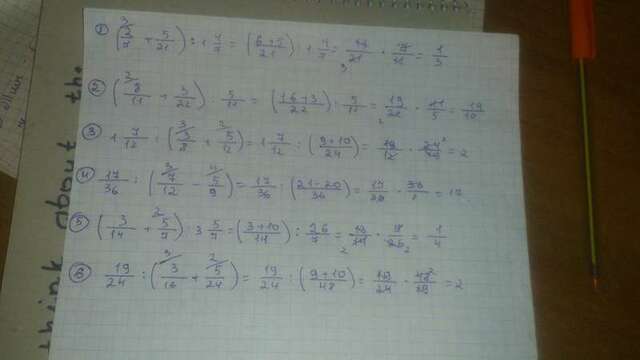 ① (2/7 + 5/21) : 1 4/7 = (6+5/21) : 1 4/7 = 11/21 · 7/11 = 1/3
② (8/11 + 3/22) : 5/11 = (16+3/22) : 5/11 = 19/22 · 11/5 = 19/10
③ 1 7/12 : (3/8 + 5/12) = 1 7/12 : (9+10/24) = 19/12 · 24/19 = 2
④ 17/36 : (7/12 - 5/9) = 17/36 : (21-20/36) = 17/36 · 36/1 = 17
⑤ (3/14 + 5/7) : 3 5/7 = (3+10/14) : 26/7 = 13/14 · 7/26 = 1/4
⑥ 19/24 : (3/16 + 5/24) = 19/24 : (9+10/48) = 19/24 · 48/19 = 2
think about